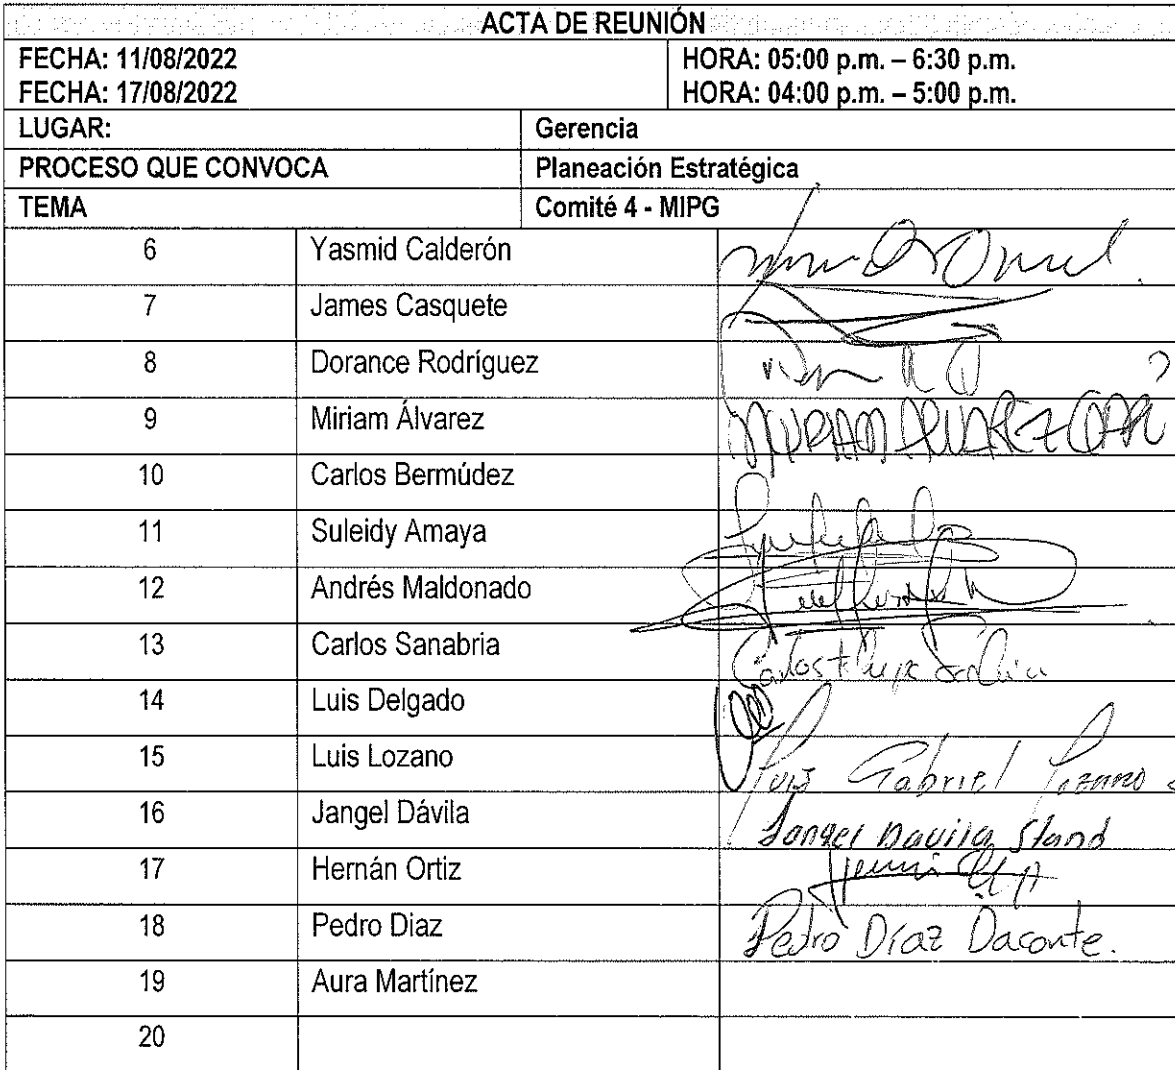 ACTA DE REUNIÓN
FECHA: 11/08/2022 HORA: 05:00 p.m. – 6:30 p.m.
FECHA: 17/08/2022 HORA: 04:00 p.m. – 5:00 p.m.
LUGAR: Gerencia
PROCESO QUE CONVOCA Planeación Estratégica
TEMA Comité 4 - MIPG
6 Yasmid Calderón
7 James Casquete
8 Dorance Rodríguez
9 Miriam Álvarez
10 Carlos Bermúdez
11 Suleidy Amaya
12 Andrés Maldonado
13 Carlos Sanabria Carlos
14 Luis Delgado
15 Luis Lozano Luis Gabriel Lozano
16 Jangel Dávila Jangel Davila Stand
17 Hernán Ortiz
18 Pedro Diaz Pedro Díaz Daconte.
19 Aura Martínez
20